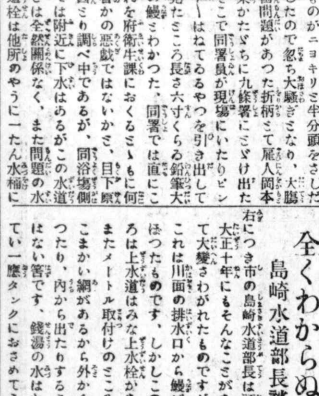 ものがニヨキリと半分頭をさした
したので忽ち大騒ぎとなり、大膓
問題があつた折柄とて雇人岡本
某かたゞちに九條署にとゞけ出た
こで同署員が現場にいたりピン
〳〵はねてゐるやつを引き出して
見たところ長さ六寸くらゐ鉛筆大
鰻とわかつた、同署では直にこ
を府衛生課におくるとゝもに何
者かの惡戯ではないかと、目下原
因り調べ中であるが、同浴塲側
は附近に下水はあるがこの水道
とは全然關係なく、また問題の水
道栓は他所のやうに一たん水桶に
全くわからぬ
島崎水道部長談
右につき市の島崎水道部長は
大正十年にもそんなことが
て大變さわがれたものですが
これは川面の排水口から鰻が
ほつたものです、しかしこの
ろは上水道はみな上水栓から
またメートル取付けのところ
こまかい網があるから外から
つたり、內から出たりするこ
はない筈です　錢湯の水は
てい一應タンクにおさめてこ